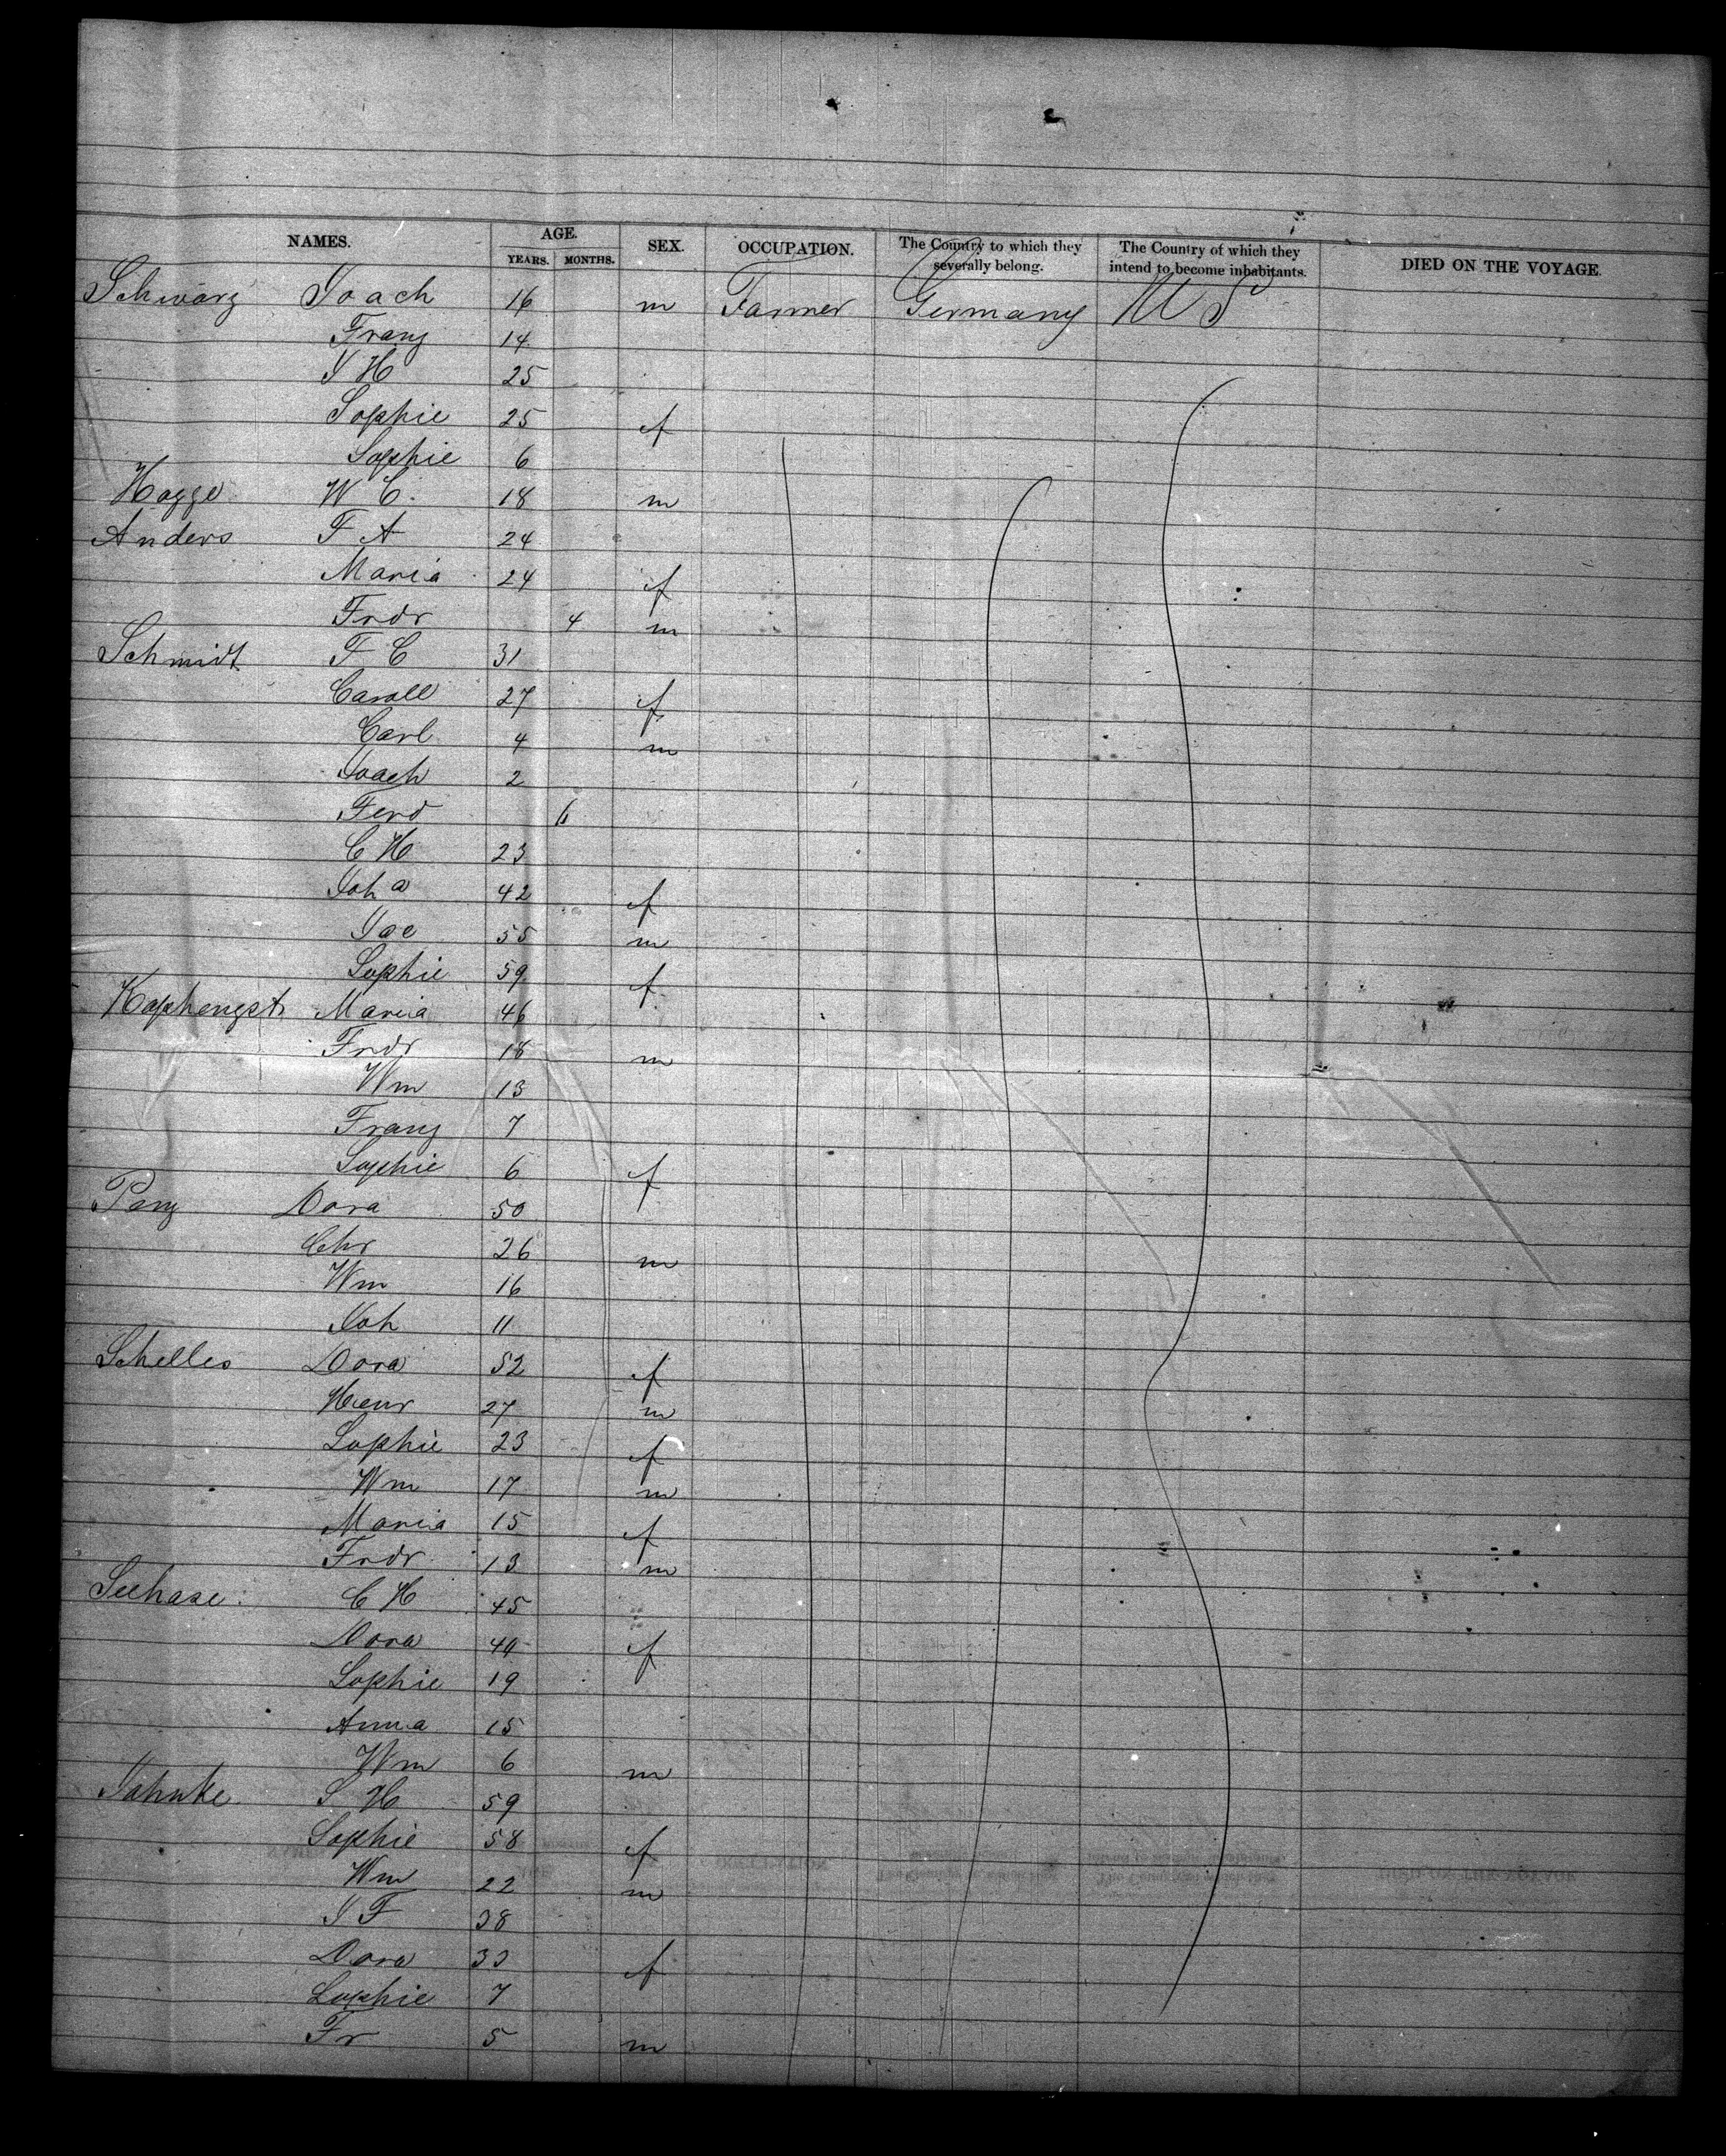 NAMES. AGE. SEX. OCCUPATION. The Country to which they severally belong. The Country of which they intend to become inhabitants. DIED ON THE VOYAGE.
YEARS. MONTHS.
Schwarz Joach 16 m Farmer Germany U S
Franz 14
J H 25
Sophie 25 f
Sophie 6
Hagge W C. 18 m
Anders F A 24
Maria 24 f
Frdr 4 m
Schmidt F C 31
Caroll 27 f
Carl 4 m
Joach 2
Ferd
C H 23
Joh a 42 f
Joc 55 m
Sophie 59 f
Kaphengst Maria 46
Frdr 18 m
Wm 13
Franz 7
Sophie 6 f
Penz Dora 50
Chr 26 m
Wm 16
Joh 11
Schelles Dora 52 f
Henr 27 m
Sophie 23 f
Wm 17 m
Maria 15 f
Frdr 13 m
Seehase C H 45
Dora 44 f
Sophie 19
Anna 15
Wm 6 m
Jahnke J H 59
Sophie 58 f
Wm 22 m
J F 38
Dora 33 f
Sophie 7
Fr 5 m